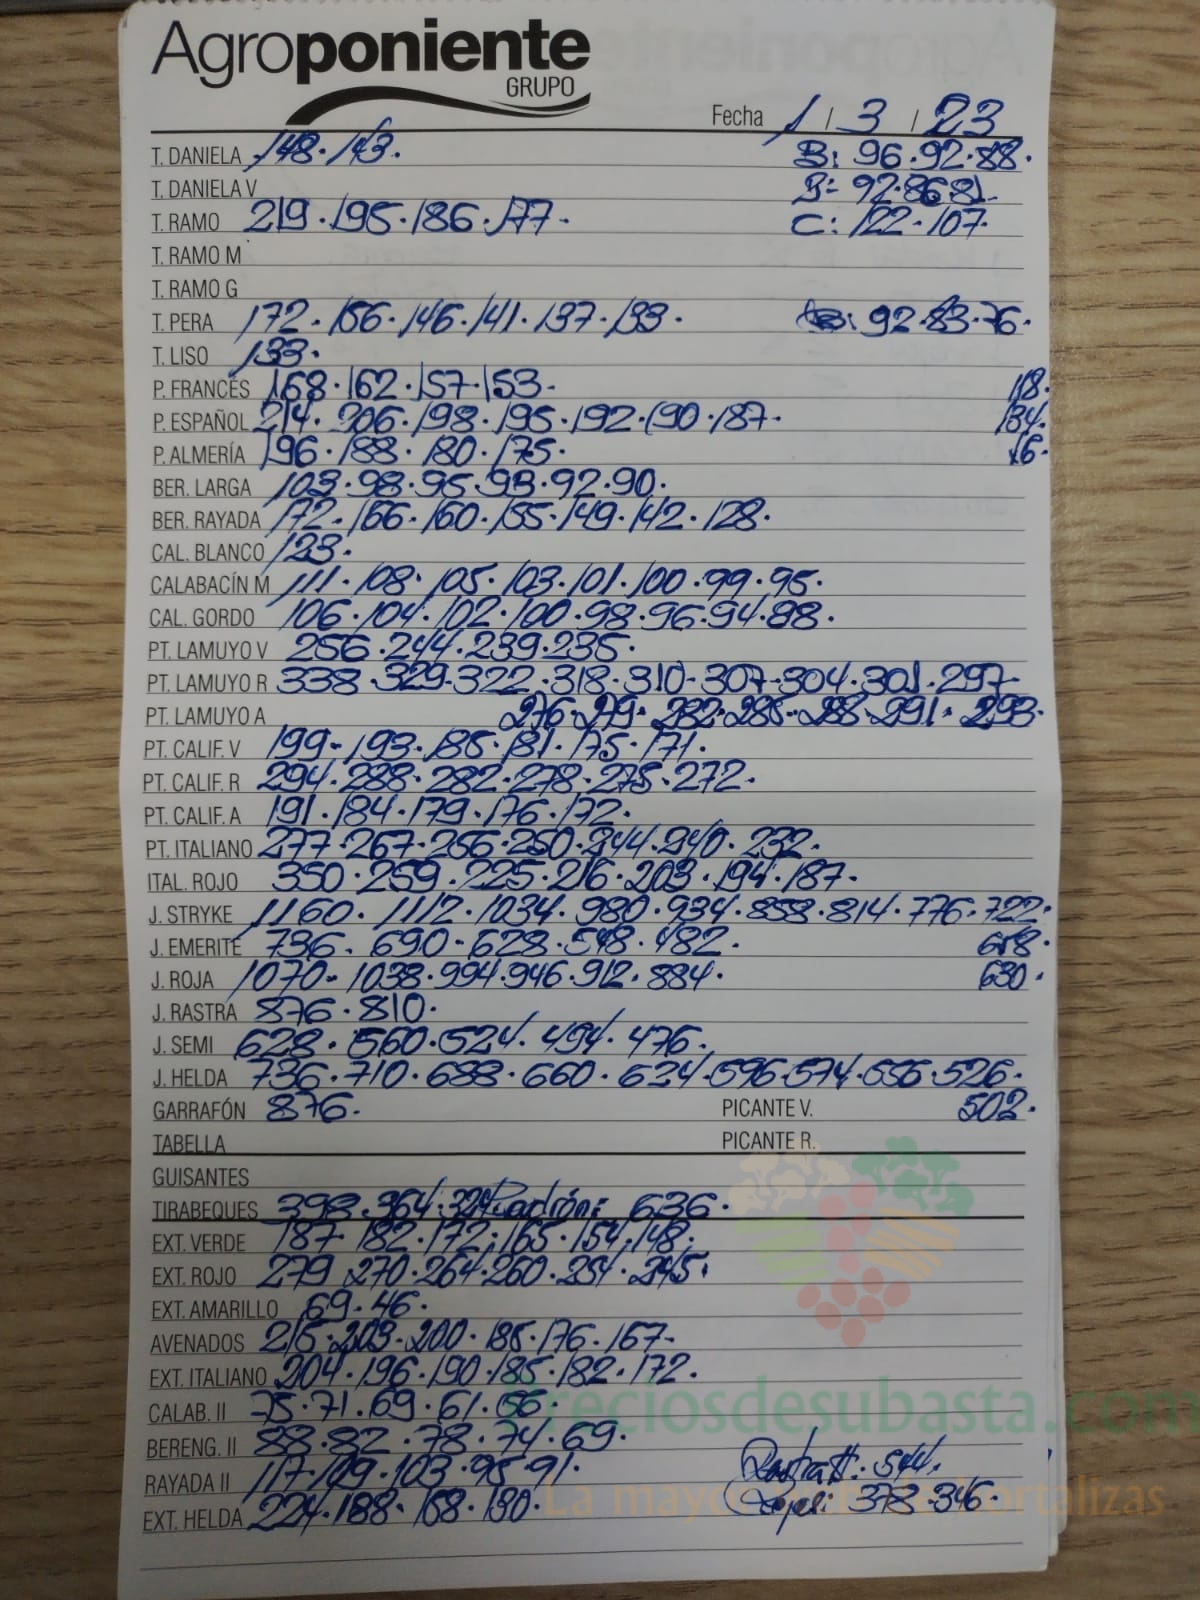 Agroponiente
GRUPO
Fecha 1 / 3 / 23
T. DANELA 148. 143. B: 96. 92. 88.
T. DANIELA V B= 92. 86. 81.
T. RAMO 219. 195. 186. 177. C: 122. 107.
T. RAMO M
T. RAMO G
T. PERA 172. 156. 146. 141. 137. 133. 92. 83. 76.
T. LISO 133.
P. FRANCÉS 168. 162. 157. 153. 118.
P. ESPAÑOL 214. 206. 198. 195. 192. 190. 187. 184.
P. ALMERÍA 196. 188. 180. 175.
BER. LARGA 103. 98. 95. 93. 92. 90.
BER. RAYADA 172. 166. 160. 155. 149. 142. 128.
CAL. BLANCO 123.
CALABACÍN M 111. 108. 105. 103. 101. 100. 99. 95.
CAL. GORDO 106. 104. 102. 100. 98. 96. 94. 88.
PT. LAMUYO V 256. 244. 239. 235.
PT. LAMUYO R 338. 329. 322. 318. 310. 307. 304. 301. 297
PT. LAMUYO A 276. 279. 282. 285. 288. 291. 293.
PT. CALIF. V 199. 193. 185. 181. 175. 171.
PT. CALIF. R 294. 288. 282. 278. 275. 272.
PT. CALIF. A 191. 184. 179. 176. 172.
PT. ITALIANO 277. 267. 256. 250. 244. 240. 232.
ITAL. ROJO 350. 259. 225. 216. 203. 194. 187.
J. STRYKE 1160. 1112. 1034. 980. 934. 858. 814. 776. 722.
J. EMERITE 736. 690. 628. 548. 482.
J. ROJA 1070. 1038. 994. 946. 912. 884. 630.
J. RASTRA 876. 810.
J. SEMI 628. 560. 524. 494. 476.
J. HELDA 736. 710. 688. 660. 634. 596. 574. 556. 526.
GARRAFÓN 876. PICANTE V. 502.
TABELLA PICANTE R.
GUISANTES
TIRABEQUES 398. 364. 324 Padrón: 636.
EXT. VERDE 187. 182. 172. 165. 154. 148.
EXT. ROJO 279 270. 264. 260. 254. 245.
EXT. AMARILLO 69. 46.
AVENADOS 215. 203. 200. 185. 176. 167.
EXT. ITALIANO 204. 196. 190. 185. 182. 172.
CALAB. II 75. 71. 69. 61. 56.
Preciosdesubasta.com
BERENG. II 88. 82. 78. 74. 69.
RAYADA II 117. 109. 103. 95. 91. Rastra II: 544.
EXT. HELDA 224. 188. 158. 130. 378. 346.
La mayor hortalizas